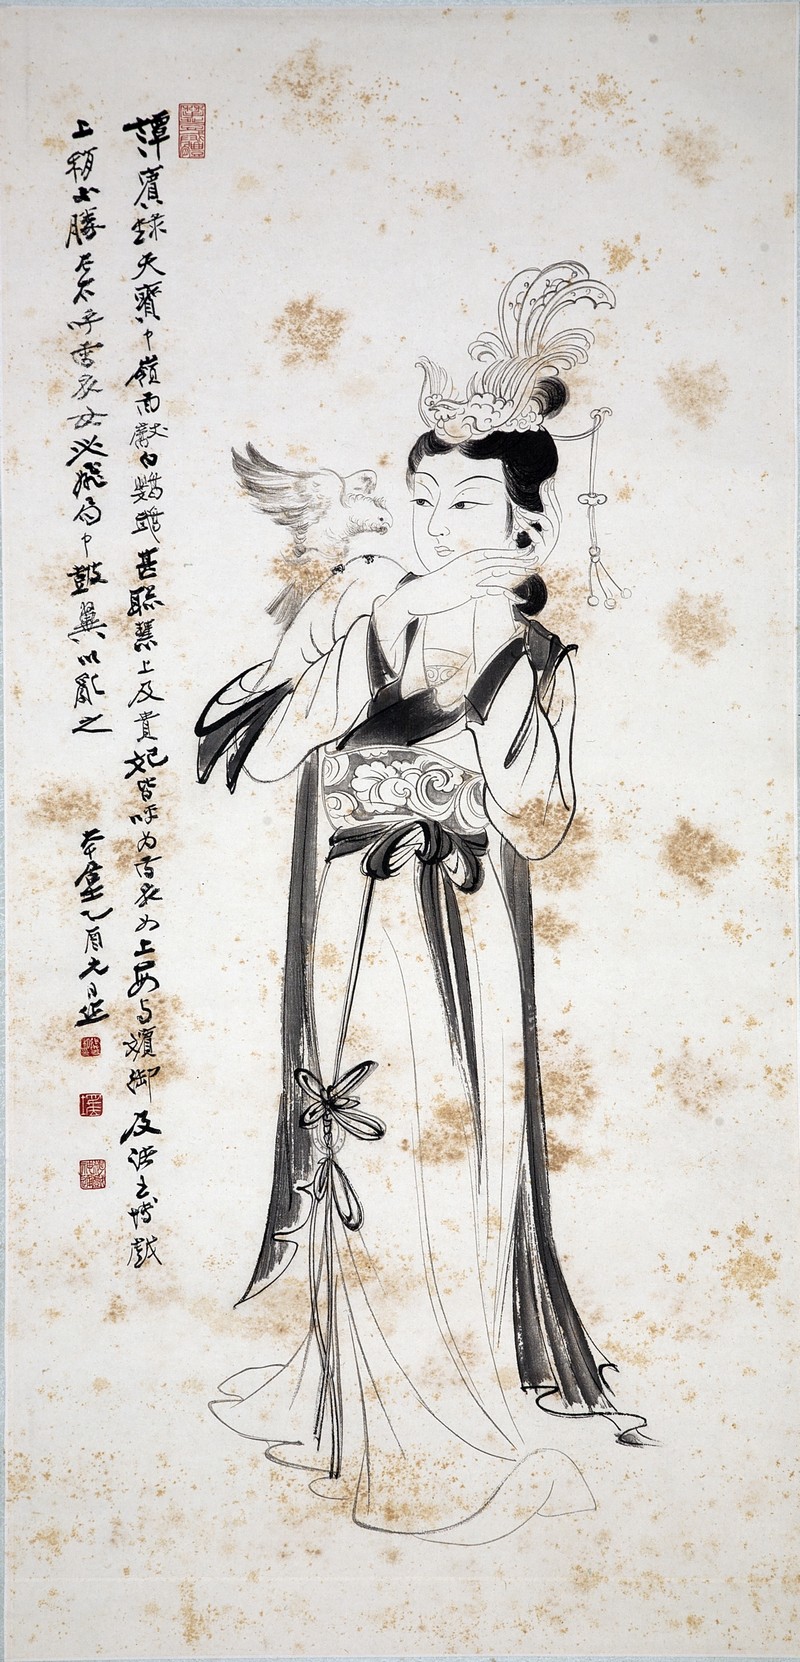 譚賓錄天寶中嶺南獻白鸚鵡甚聪慧上及貴妃皆呼为雪衣女上每与嬪御及諸王博戯
上稍不勝左右呼雪衣女必飛局中鼓翼以亂之
乙酉元日